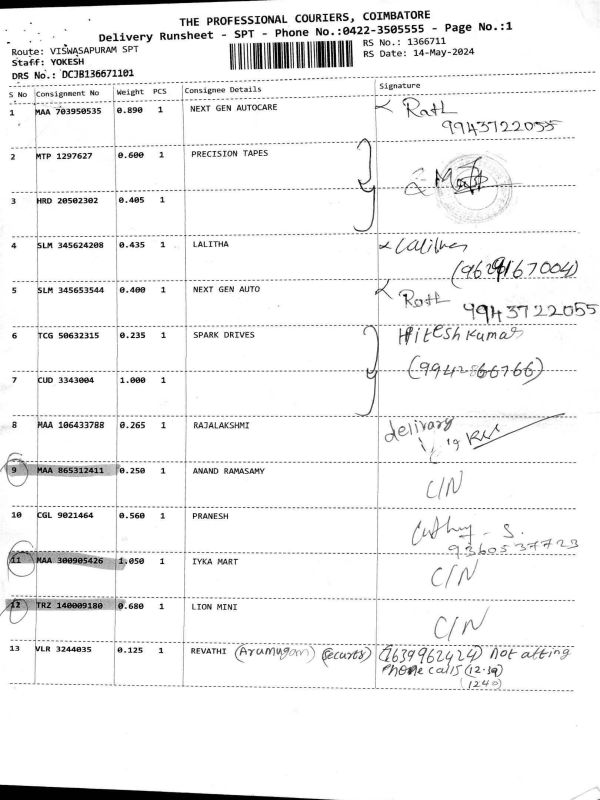 THE PROFESSIONAL COURIERS, COIMBATORE
Delivery Runsheet - SPT - Phone No.:0422-3505555 - Page No.:1
Route: VISWASAPURAM SPT
RS No.: 1366711
Staff: YOKESH
RS Date: 14-May-2024
DRS No.: DCJB136671101
S No Consignment No Weight PCS Consignee Details Signature
1 MAA 703950535 0.890 1 NEXT GEN AUTOCARE
9943722055
2 MTP 1297627 0.600 1 PRECISION TAPES
3 HRD 20502302 0.405 1
4 SLM 345624208 0.435 1 LALITHA Lalitha
5 SLM 345653544 0.400 1 NEXT GEN AUTO 9943722055
6 TCG 50632315 0.235 1 SPARK DRIVES Hitesh kumar
7 CUD 3343004 1.000 1
8 MAA 106433788 0.265 1 RAJALAKSHMI delivary
9 MAA 865312411 0.250 1 ANAND RAMASAMY C/N
10 CGL 9021464 0.560 1 PRANESH
9360537723
11 MAA 300905426 1.050 1 IYKA MART C/N
12 TRZ 140009180 0.680 1 LION MINI C/N
13 VLR 3244035 0.125 1 REVATHI (Arumugam) (Securits) (7639962424) Not atting
Phone calls (12.39)
(1240)